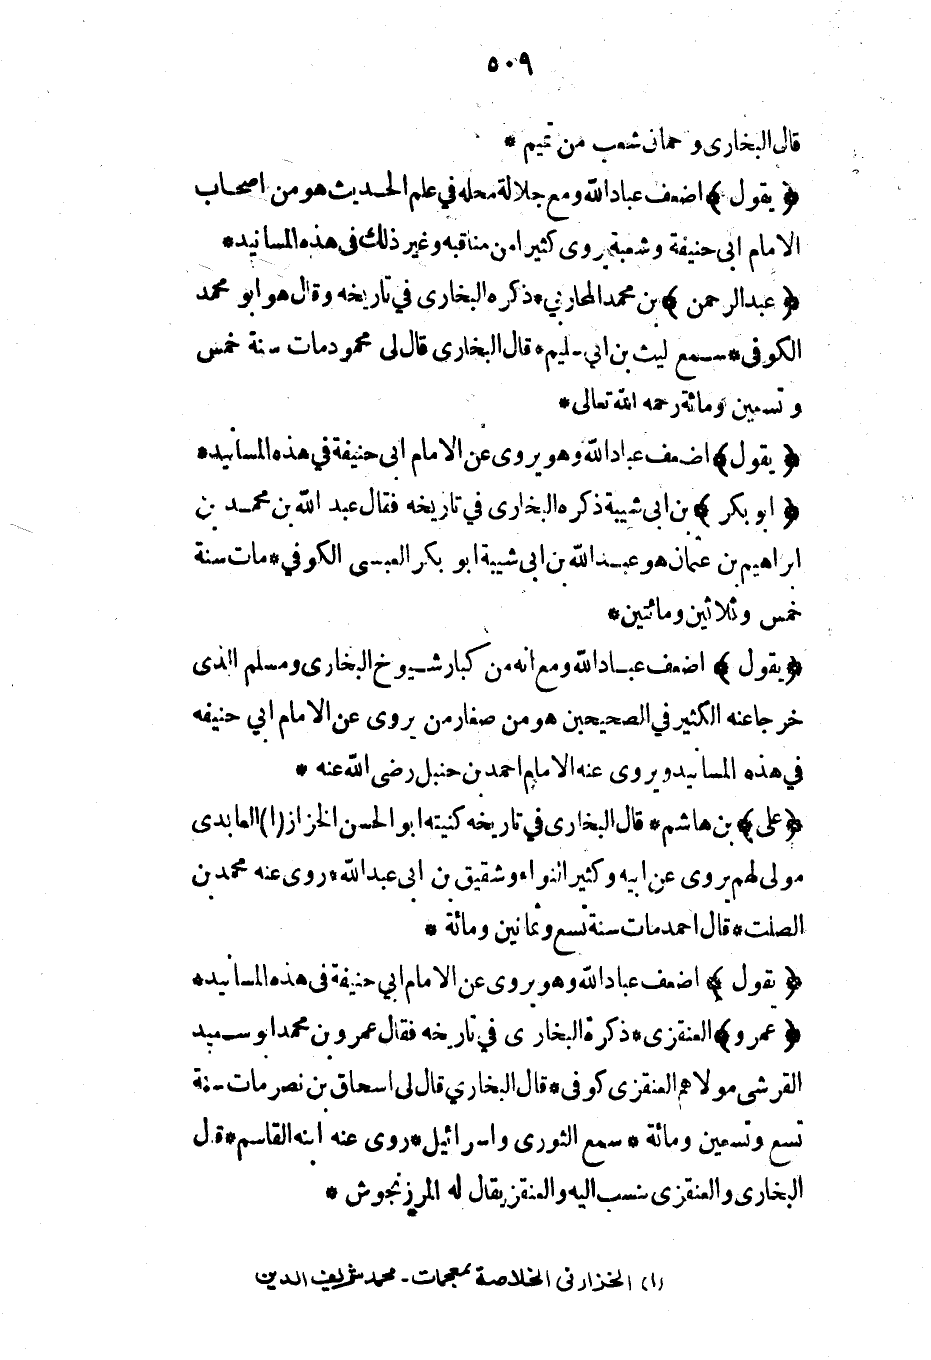 ٥٠٩
قال البخارى و حمانى شعب من تميم *
﴿ يقول ﴾ اضعف عباد الله ومع جلالة محله في علم الحديث هو من اصحاب
الامام ابى حنيفة وشعبة يروى كثيرا من مناقبه وغير ذلك فى هذه المسانيد*
﴿ عبد الرحمن ﴾ بن محمد المحاربي* ذكره البخارى في تاريخه وقال هو ابو محمد
الكوفى* سمع ليث بن ابي سليم* قال البخارى قال لى محمود مات سنة خمس
و تسعين ومائة رحمه الله تعالى*
﴿ يقول ﴾ اضعف عباد الله وهو يروى عن الامام ابى حنيفة في هذه المسانيد*
﴿ ابو بكر ﴾ بن ابى شيبة ذكره البخارى في تاريخه فقال عبد الله بن محمد بن
ابراهيم بن عثمان هو عبد الله بن ابى شيبة ابو بكر العبسى الكوفي* مات سنة
خمس وثلاثين ومائتين*
﴿ يقول ﴾ اضعف عباد الله ومع انه من كبار شيوخ البخارى ومسلم الذى
خرجا عنه الكثير في الصحيحين هو من صغار من يروى عن الامام ابي حنيفه
في هذه المسانيد ويروى عنه الامام احمد بن حنبل رضى الله عنه *
﴿ على ﴾ بن هاشم* قال البخارى في تاريخه كنيته ابو الحسن الخزاز (١) العابدى
مولى لهم يروى عن ابيه وكثير النواء وشقيق بن ابى عبد الله* روى عنه محمد بن
الصلت* قال احمد مات سنة تسع وثمانين ومائة *
﴿ يقول ﴾ اضعف عباد الله وهو يروى عن الامام ابي حنيفة فى هذه المسانيد*
﴿ عمرو ﴾ العنقزى* ذكرة البخارى في تاريخه فقال عمرو بن محمد ابو سعيد
القرشى مولاهم العنقزى كوفى* قال البخاري قال لى اسحاق بن نصر مات سنة
تسع وتسعين ومائة * سمع الثورى واسرائيل* روى عنه ابنه القاسم* قال
البخارى والعنقزى ينسب اليه والعنقز يقال له المرزنجوش *
(١) الخزاز فى الخلاصة بمعجمات - محمد شريف الدين